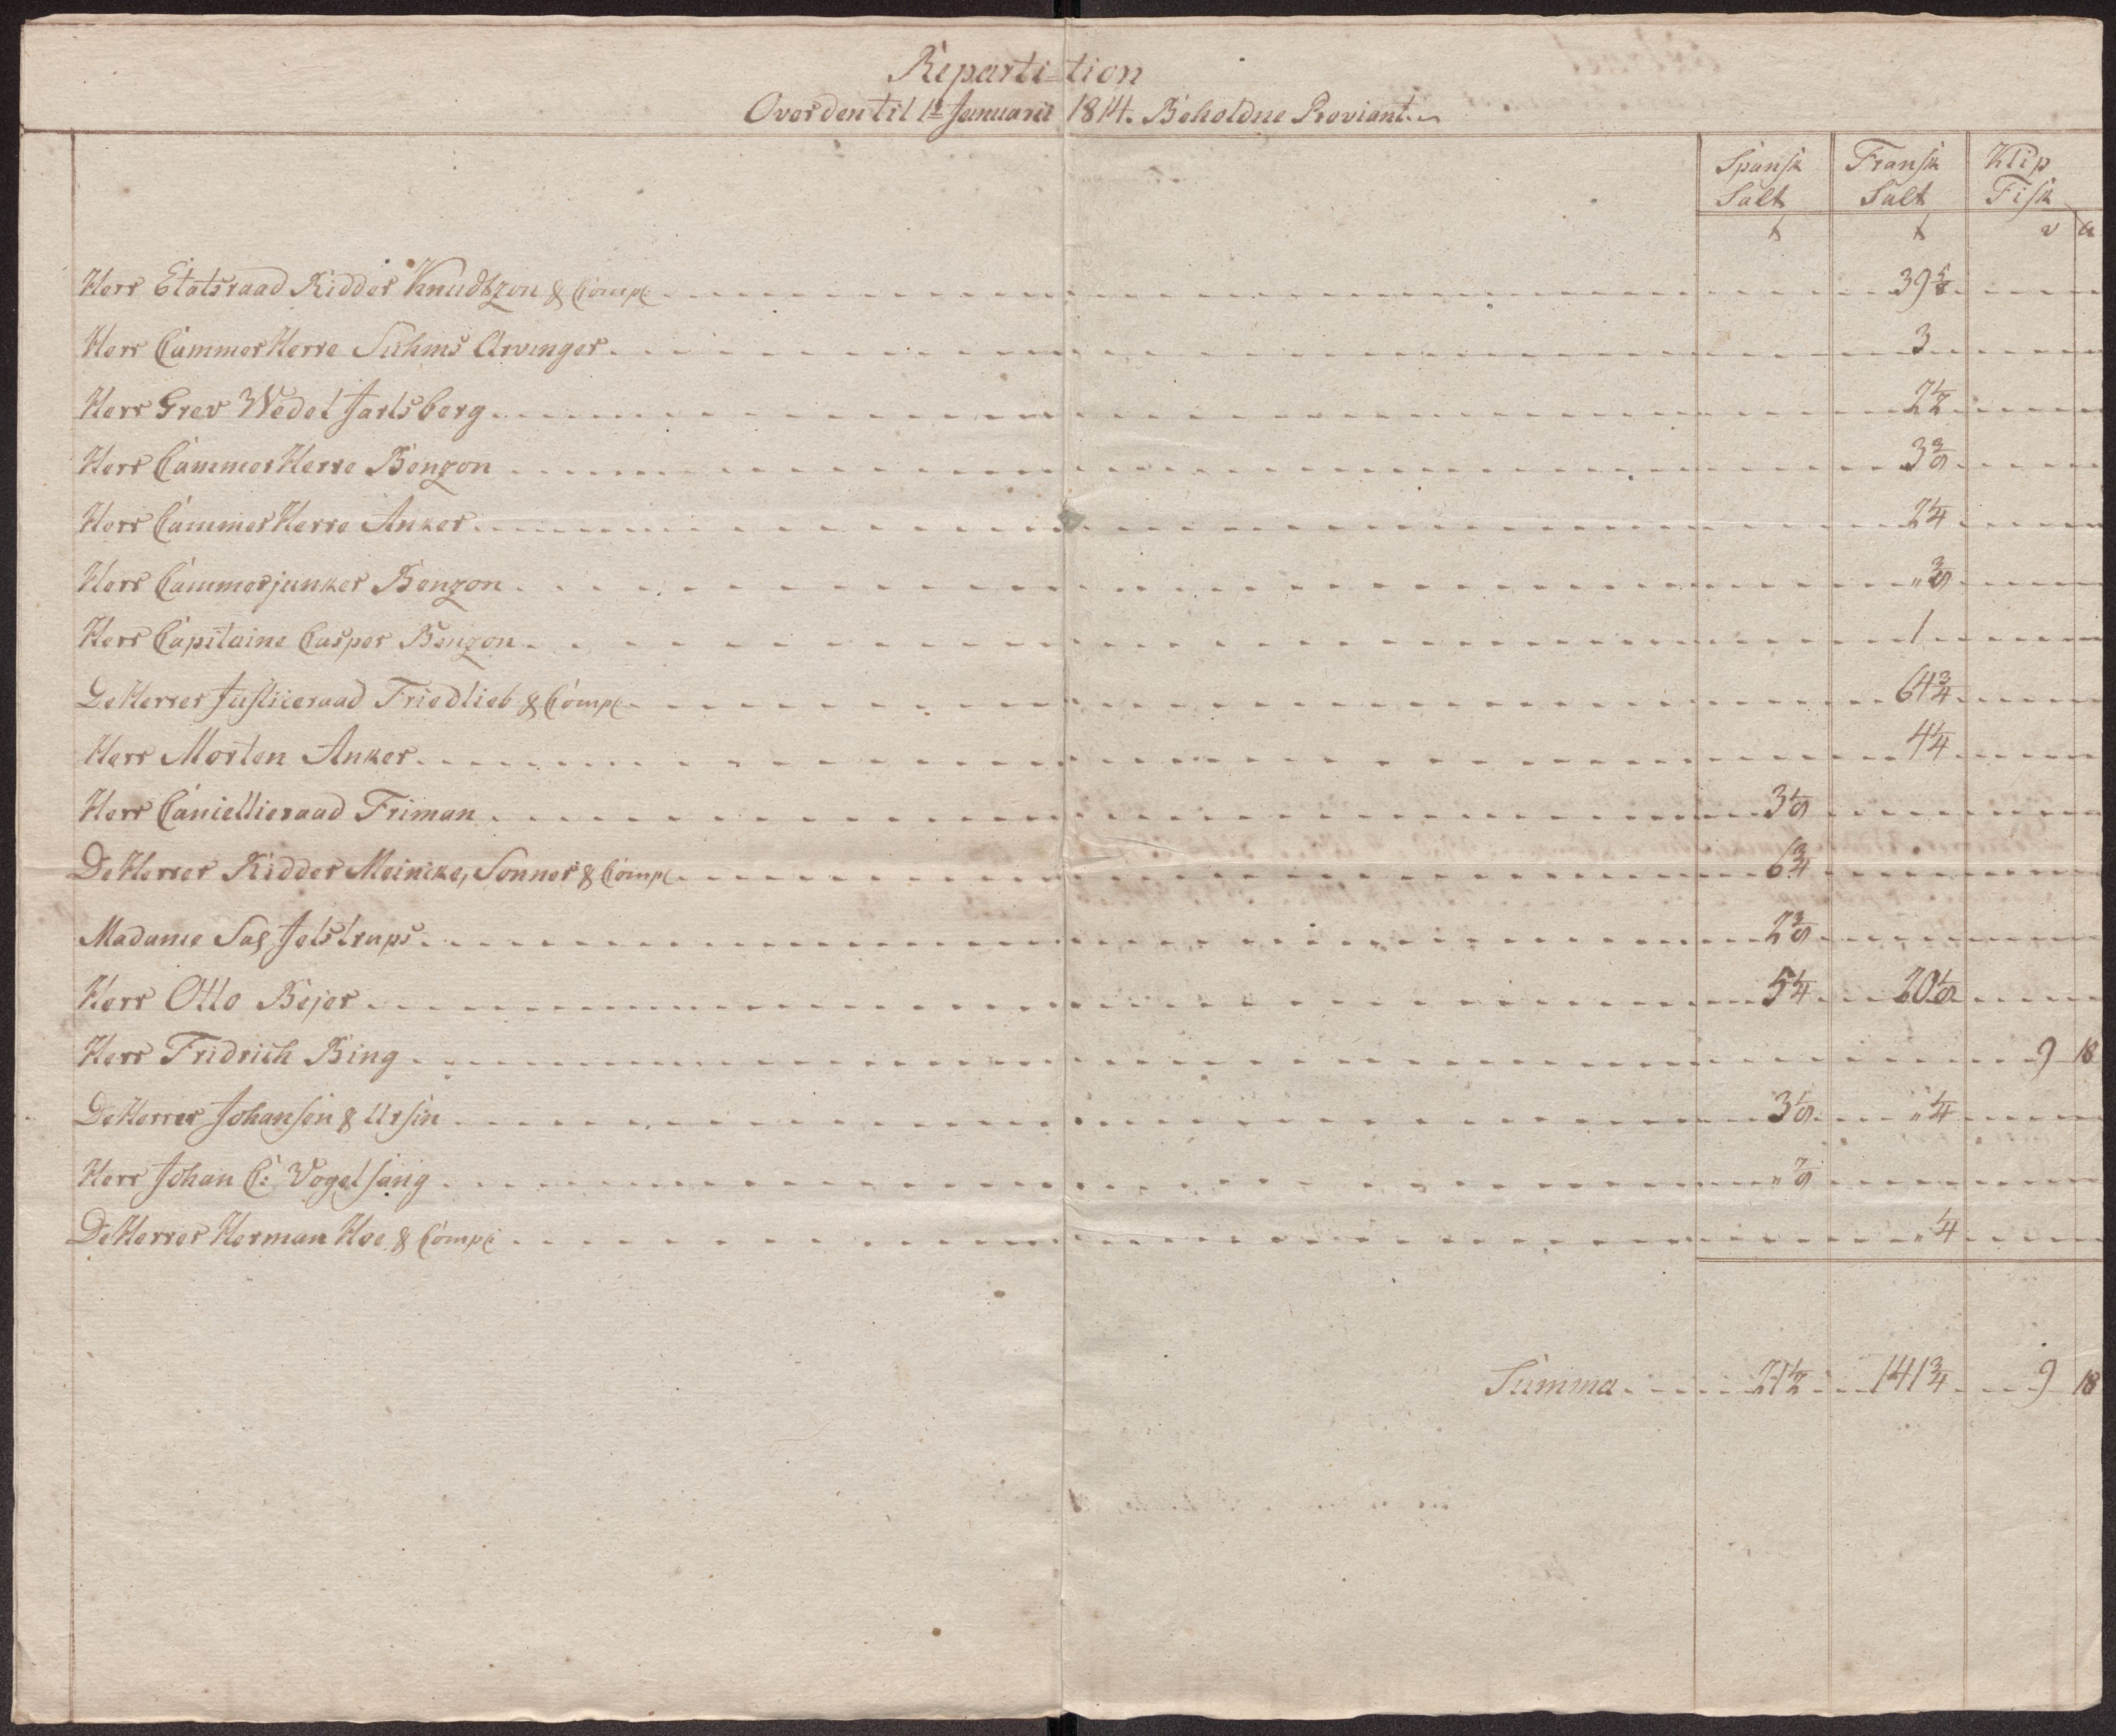 Reparti-tion
Over den til 1ste Januarii 1814. Beholdne Proviant.
Spansk Salt Fransk Salt Klip Fisk
t t v
Herr Etatsraad Ridder Knudtzon & Comp: 39 5/8
Herr CammerHerre Suhms Arvinger 3
Herr Grev Wedel Jarlsberg 2 1/2
Herr CammerHerre Benzon 3 3/8
Herr CammerHerre Anker 2 1/4
Herr Cammerjunker Benzon " 3/8
Herr Capitaine Casper Benzon 1
De Herrer Justiceraad Friedlieb & Comp: 64 3/4
Herr Morten Anker 4 1/4
Herr Cancellieraad Friman 3 1/8
De Herrer Ridder Meincke, Sønner & Comp: 6 3/4
Madame Sal Jelstrups 2 3/8
Herr Otto Bejer 5 1/4 20 1/8
Herr Fridrich Bing 9 18
De Herrer Johansen & Ursin 3 1/8 " 1/4
Herr Johan C: Vogelsang " 7/8
De Herrer Herman Hoe & Comp: " 1/4
Summa 21 1/2 141 3/4 9 18